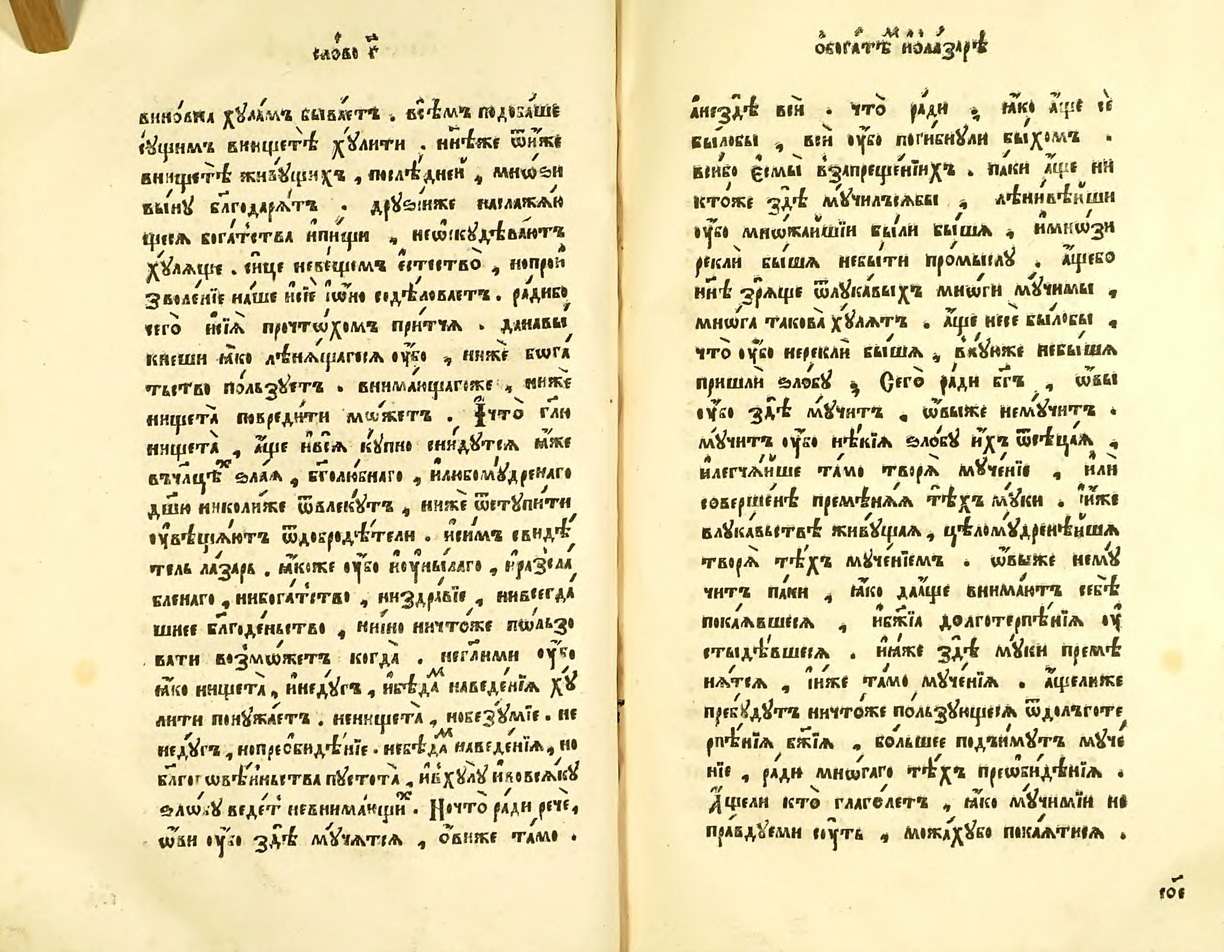 сло́во г҃
вино́вна хꙋла́мъ быва́етъ . всѣ́мъ подоба́ше
сꙋщимъ внищетѣ̀ хꙋ́лити . нн҃ѣже ѿни́же
внищетѣ̀ живꙋ́щихъ , послѣ́дней , мно́ѕи
вы́нꙋ благодаря́тъ . дрꙋѕи́иже наслажаю
щеся бога́тства ипи́щи , неѡскꙋдѣва́ютъ
хꙋ́ляще . си́це неве́щемъ естество̀ , нопрои
зволе́нїе на́ше исїѐ ѡ҆́но содѣ́ловаетъ . ра́дибо
сего̀ исїѧ̀ прочто́хомъ при́тчѧ . данавы́
кнеши ꙗ҆́ко лѣнѧ́щагосѧ ᲂу҆́бо , нижѐ бога́
тьство по́льзꙋетъ . внима́ющагоже , нижѐ
нищета̀ повреди́ти мо́жетъ . И҆что̀ гл҃ю
нищета̀ , а҆́ще ивсѧ̀ кꙋ́пно сни́дꙋтсѧ ꙗ҆́же
въчл҃цѣхъ ѕла́ѧ , бг҃олюби́ваго , илюбомꙋ́дренаго
дш҃и николи́же ѿвлекꙋ́тъ , нижѐ ѿстꙋпи́ти
ᲂу҆вѣща́ютъ ѿдобродѣ́тели . исимъ свидѣ́
тель ла́зарь . ꙗ҆́коже ᲂу҆́бо иᲂу҆ны́лаго , иразсла́
бленаго , нибога́тство , низдра́вїе , нивсегда́
шнее бл҃годе́ньство , нии́но ничто́же по́льзо
вати возмо́жетъ когда̀ . негли́ми ᲂу҆́бо
ꙗ҆́ко нищета̀ , инедꙋ́гъ , ибѣда́мъ наведе́нїѧ хꙋ́
лити понꙋжа́етъ . ненищета̀ , нобезꙋ́мїе . не
недꙋ́гъ , нопреѡби́дѣнїе . небѣда́мъ наведе́нїѧ , но
бл҃гоговѣ́иньства пꙋстота̀ , ивхꙋ́лꙋ ивовсѧ́кꙋ
ѕло́бꙋ веде́тъ невнима́ющихъ . Почто̀ ра́ди речѐ ,
ѡ҆́ви ᲂу҆́бо здѣ̀ мꙋ́чатсѧ , о҆́виже та́мо .
ѡ҆бога́тѣмъ ила́зарѣ
анездѣ̀ всѝ . что̀ ра́ди ; ꙗ҆́ко а҆́ще сѐ
бы́лобы , всѝ ᲂу҆́бо поги́бнꙋли бы́хомъ .
всѝбо є҆смы̀ взапреще́нїихъ . па́ки а҆́ще ни
кто́же здѣ̀ мꙋ́чилъсѧбы , лѣни́вѣйши
ᲂу҆́бо мно́жайшїи бы́ли бы́шѧ , имно́зи
реклѝ бы́шѧ небы́ти про́мыслꙋ . а҆́щебо
нн҃ѣ зрѧ́ще ѿлꙋка́выхъ мно́ги мꙋ́чимы ,
мно́га такова̀ хꙋ́лѧтъ . а҆́ще несѐ бы́лобы ,
что̀ ᲂу҆́бо нереклѝ бы́шѧ , вкꙋ́юже небы́шѧ
пришлѝ ѕло́бꙋ ; Сего̀ ра́ди бг҃ъ , ѡ҆́вы
ᲂу҆́бо здѣ̀ мꙋ́читъ , ѡ҆́выже немꙋ́читъ .
мꙋ́читъ ᲂу҆́бо нѣ́кїѧ ѕло́бꙋ и҆́хъ ѿсѣца́ѧ ,
илегча́йше та́мо творѧ̀ мꙋче́нїе , и҆лѝ
соверше́нѣ премѣнѧ́ѧ тѣ́хъ мꙋ́ки . и҆́же
влꙋка́вьствѣ живꙋ́щаѧ , цѣломꙋ́дренѣйшѧ
творѧ̀ тѣ́хъ мꙋче́нїемъ . ѡ҆́выже немꙋ́
читъ па́ки , ꙗ҆́ко да́а҆ще внима́ютъ себѣ̀
пока́ѧвшесѧ , ибж҃їѧ долготерпѣ́нїѧ ᲂу
стыдѣ́вшесѧ . иꙗ҆́же здѣ̀ мꙋ́ки премѣ
нѧ́тсѧ , и҆́же та́мо мꙋче́нїѧ . а҆́щелиже
пребꙋ́дꙋтъ ничто́же по́льзꙋющесѧ ѿдолъготе
рпѣ́нїѧ бж҃їѧ , бо́льшее поды́мꙋтъ мꙋче́
нїе , ра́ди мно́гаго тѣ́хъ преѡби́дѣнїѧ .
А҆́щели кто̀ глаго́летъ , ꙗ҆́ко мꙋ́чимїи не
пра́вдꙋеми сꙋ́ть , можа́хꙋбо пока́ѧтисѧ .
сос҃